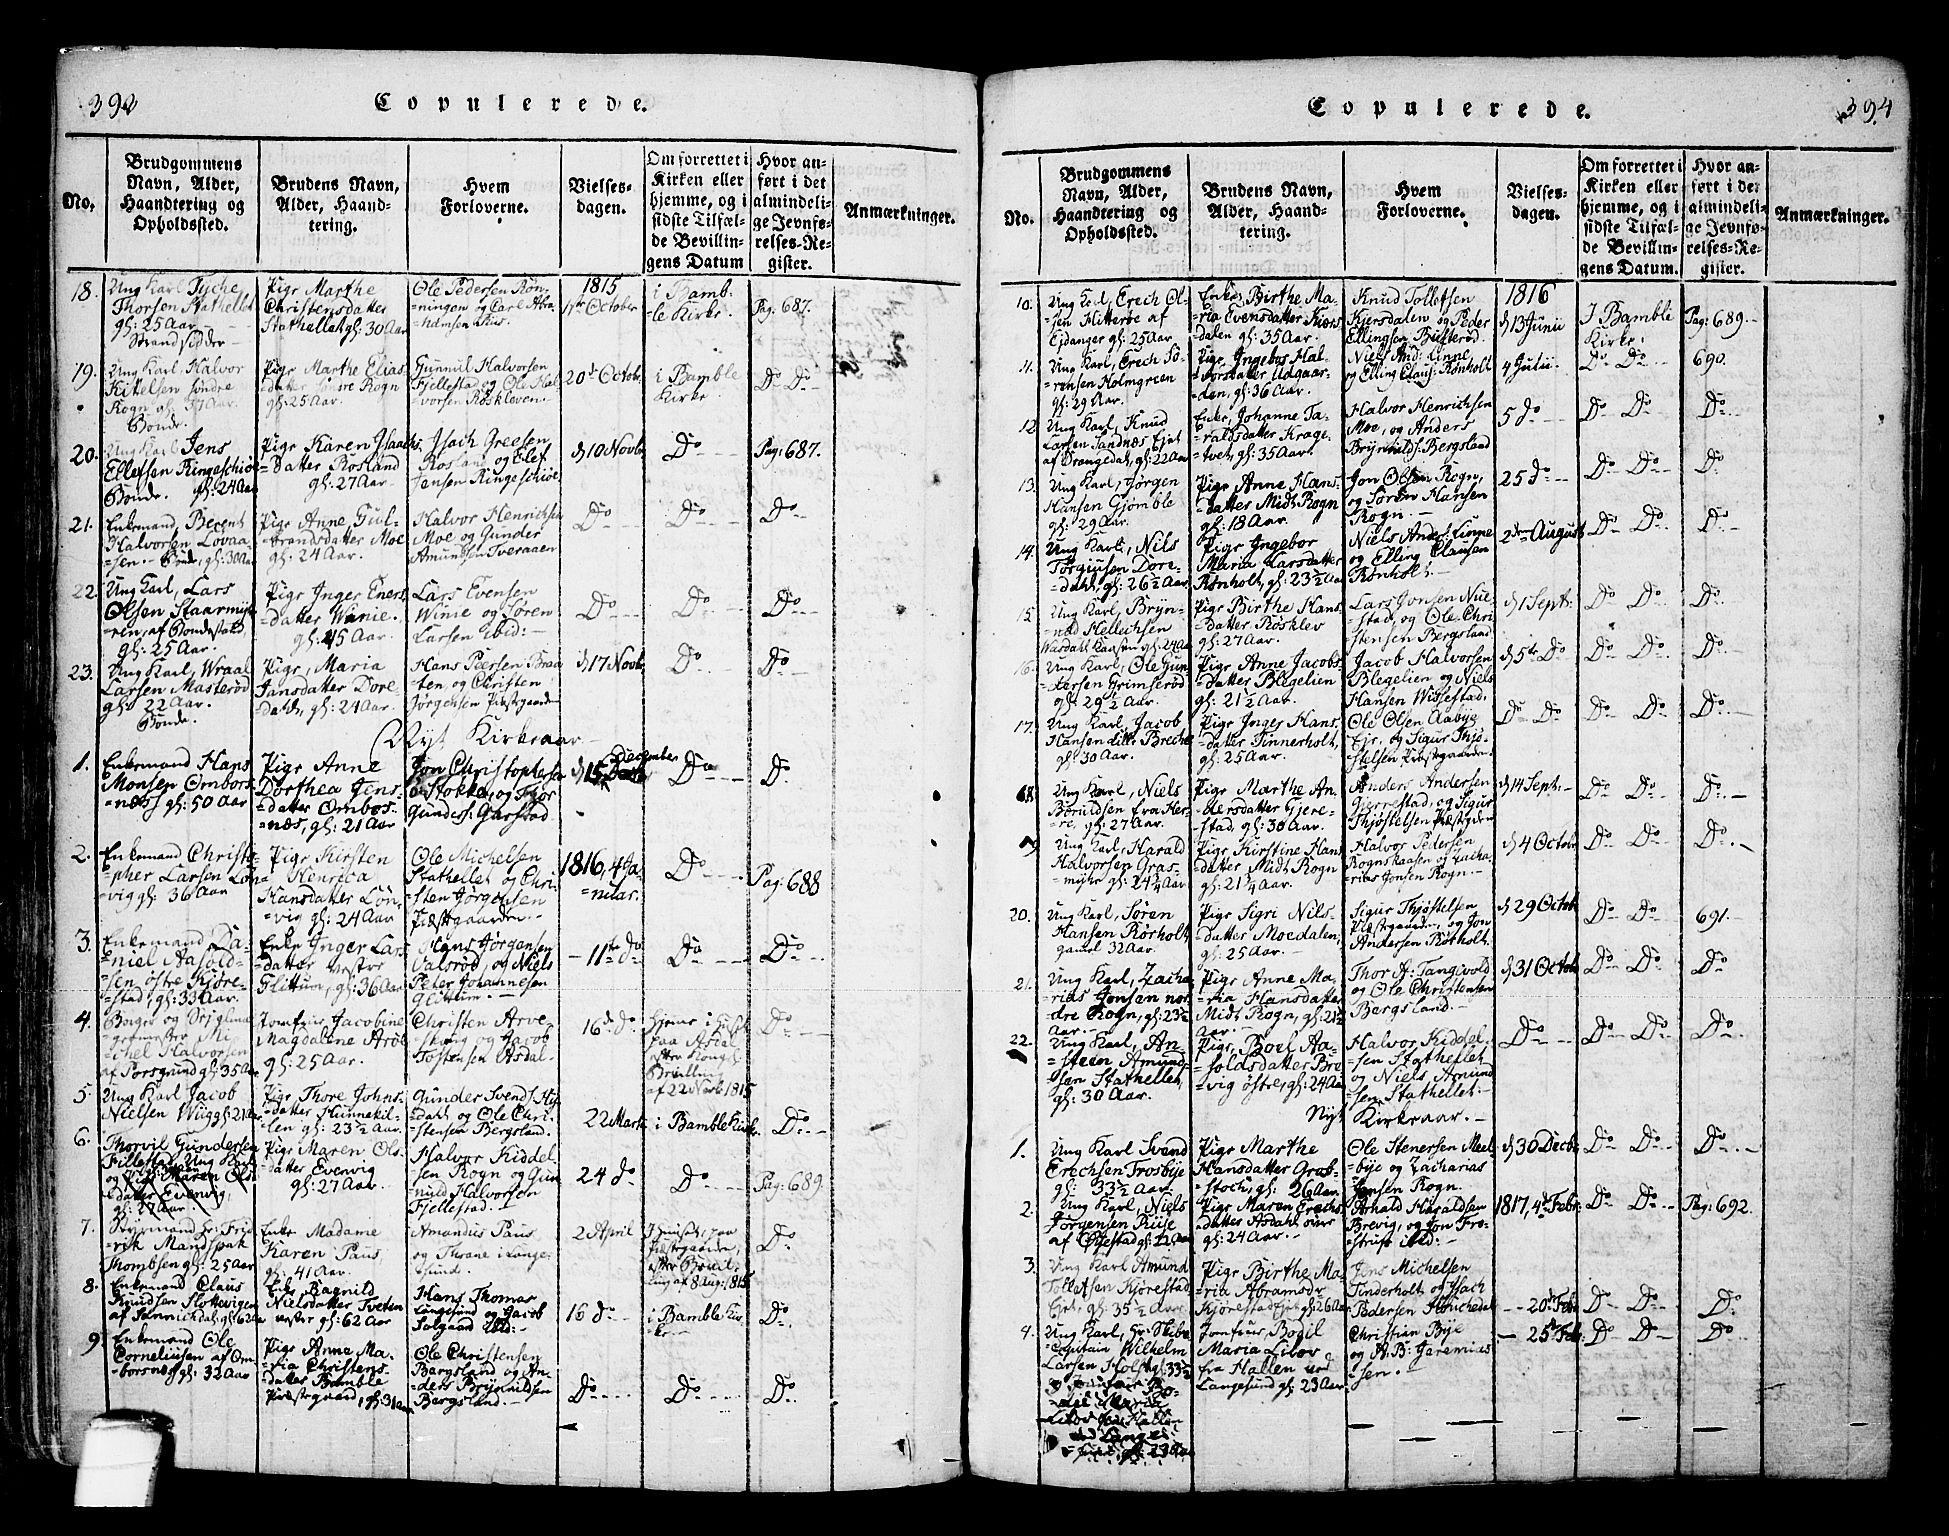 392
Copulerede.
No.
Brudgommens
Navn, Alder,
Haandtering og
Opholdssted.
Brudens Navn,
Alder, Haand-
tering.
Hvem
Forloverne.
Vielses-
dagen.
Om forrettet i
Kirken eller
hjemme, og i
sidste Tilfæl-
de Bevillin-
gens Datum
Hvor an-
ført i det
almindeli-
ge Jevnfø-
relses-Re-
gister.
Anmærkninger.
18.
Ung Karl Tyche
Thorsen Stathellet
gl: 25 Aar
Strandsidder
Pige Marthe
Christensdatter
Stathellet gl: 30 Aar
Ole Pedersen Røn-
ningen og Carl Abra-
hamsen Kiis.
1815
October
i Bamb-
le Kirke.
Pag: 687.
19.
Ung Karl Halvor
Kittelsen søndre
Rogn gl: 37 Aar.
Bonde.
Pige Marthe Elias-
datter søndre Rogn
gl: 25 Aar.
Gunnul Halvorsen
Fjellestad og Ole Hal-
vorsen Røskleven.
20d October
i Bamble
Kirke.
Do Do
20.
Ung Karl Jens
Ellefsen Ringeschiøe
Bonde. gl: 24 Aar
Pige Karen Isaachs-
datter Rosland
gl: 27 Aar
Isach Greesen
Rosland og Elef
Jensen Ringeschiøe
d 10 Novbr
Do
Pag: 687.
21.
Enkemand, Berent
Halvorsen Lovaa-
sen. Bonde, gl: 30 Aar
Pige Anne Gul-
brandsdatter Moe
gl: 24 Aar.
Halvor Henrichsen
Moe og Gunder
Amundsen Tveraaen
Do
Do
Do
22.
Ung Karl, Lars
Olsen Staarmyr-
ren, af Bondestald,
gl: 25 Aar.
Pige Inger Evens-
datter Winie.
gl: 45 Aar.
Lars Evensen
Winie og Søren
Larsen Ibid:
Do
Do
Do
23.
Ung Karl, Wraal
Larsen Masterød
gl: 22 Aar.
Bonde.
Pige, Maria
Jansdatter Dore-
dahl, gl: 24 Aar.
Hans Peersen Braa-
ten, og Christen
Jørgensen Præstgaarden
d 17 Novbr
Do
Do
Nyt Kirkeaar
1.
Enkemand Hans
Monsen Ombors-
næs gl: 50 Aar
Pige Anne
Dorthea Jens-
datter Ombos-
næs, gl: 21 Aar
Jon Christophersen
Stokke, og Thor
Gundes: Garstad
d 15 December
Do
Do
2.
Enkemand Christo-
pher Larsen Løn-
vig gl: 36 Aar
Pige Kirsten
Henrica
Hansdatter Løn-
vig gl: 24 Aar
Ole Michelsen
Stathellet og Chri-
sten Jørgensen
Præstgaarden
1816, 4 Ja-
nuar.
Do
Pag: 688
3.
Enkemand Da-
niel Aasold-
sen østre Kjøre-
stad, gl: 33 Aar.
Enke Inger Lars-
datter vestre
Glittum, gl: 36 Aar
Hans Jørgensen
Valsrød og Niels
Peter Johannesen
Glittum.
11te do
Do
Do
4.
Borger og
Mi-
chel Halvorsen
af Porsgrund gl: 35 Aar
Jomfrue Jacobine
Magdalene Aroe
gl: 25 Aar.
Christen Arve-
skoug og Jacob
Tostensen Asdal
16de do
hjeme i
paa Asdal
efter Kongl:
Bevilling
af 22 Novb: 1815
Do
5.
Ung Karl Jacob
Nielsen Wiig gl: 21 Aar
Pige Thore Johns-
datter Hunnekil-
len gl: 23 ½ Aar.
Gunder Svends:
dahl og Ole Chri-
stensen Bergsland.
22 Marts
i Bamble Kirke
Do
6.
Thorvil Gundersen
Fillestad, Ung Karl
og Pige Maren Ols-
datter Evenvig,
gl: 27 Aar.
Pige Maren Ols-
datter Evenvig
gl: 27 Aar.
Halvor Kiddel-
sen Rogn og Gun-
nuld Halvorsen
Fjellestad.
24 do
Do
Pag: 689.
7.
Styrmand hr: Frid-
rik Mandspak
Thombsen gl: 25 Aar
Enke Madame
Karen Paus,
gl: 41 Aar.
Amandus Paus
og Thrane i Lange-
sund.
2 April
paa
Præstgaarden,
efter Bevil-
ling af 8 Aug: 1815
Do
8.
Enkemand Claus
Knudsen Slottevigen
af Sannickdal, gl: 62 Aar
Enke, Ragnild
Nielsdatter Tveten
vestre gl: 62 Aar
Hans Thomas
Langesund og Jacob
Salgaad Ibid:
16 do
i Bamble Kir-
ke
Do
9.
Enkemand Ole
Corneliusen af Om-
borsnæs, gl: 32 Aar
Pige Anne Ma-
ria Christens-
datter Bamble
Præstegaard, gl: 31 Aar
Ole Christensen
Bergsland og An-
ders Brynnildsen
Bergsland.
Do
Do
Do
394
Copulerede.
No.
Brudgommens
Navn, Alder,
Haandtering og
Opholdssted.
Brudens Navn,
Alder, Haand-
tering.
Hvem
Forloverne.
Vielses-
dagen.
Om forrettet i
Kirken eller
hjemme, og i
sidste Tilfæl-
de Bevillin-
gens Datum.
Hvor an-
ført i det
almindeli-
ge Jevnfø-
relses-Re-
gister.
Anmærkninger.
10.
Ung Karl, Erech Ol-
sen Flitterøe af
Ejdanger gl: 25 Aar.
Enke, Birthe Ma-
ria Evensdatter Kiærs-
dalen gl: 35 Aar.
Knud Tollefsen
Kjersdalen og Peder
Ellingsen Bufterød.
1816
d 13 Junii
I Bamble
Kirke.
Pag: 689
11.
Ung Karl, Erech Sø-
rensen Holmgreen
gl: 29 Aar.
Pige Ingebor Hal-
vorsdatter Udgaar-
den, gl: 36 Aar.
Niels And: Linne
og Elling Claus: Rønholt
4 Julii
Do Do
690.
12.
Ung Karl, Knud
Larsen Sandnæs Ejet
af Drangedal, gl: 22 Aar
Enke, Johanne Ta-
raldsdatter Krage-
tvet, gl: 35 Aar.
Halvor Henrichsen
Moe, og Anders
Brynnilds: Bergsland
5 do
Do Do
Do
13.
Ung Karl, Jørgen
Hansen Gjømble
gl: 29 Aar.
Pige Anne Hans-
datter Midt Rogn
gl: 18 Aar.
Jon Olsen Rogn,
og Søren Hansen
Rogn.
25 do
Do Do
Do
14.
Ung Karl, Nils
Torgiusen Dore-
dahl, gl: 26 ½ Aar.
Pige Ingebor
Maria Larsdatter
Rønholt, gl: 23 ½ Aar
Niels Anders: Linne
og Elling Clausen
Rønholt.
2den August
Do Do
Do
15.
Ung Karl, Bryn-
nild Hellechsen
Wasdahl Kaasen gl: 24 Aar
Pige Birthe Hans-
datter Røsklev
gl: 27 Aar.
Lars Jonsen Nue-
stad, og Ole Chri-
stensen Bergsland
d 1 Sept:
Do Do
Do
16.
Ung Karl, Ole Gun-
dersen Grimserød
gl: 29 ½ Aar.
Pige Anne Jacobs-
datter Blegelien
gl: 21 ½ Aar.
Jacob Halvorsen
Blegelien og Niels
Hansen Wissestad.
d 5te Do
Do Do
Do
17.
Ung Karl, Jacob
Hansen Lille Breche
gl: 30 Aar.
Pige Inger Hans-
datter Tinnerholt,
gl: 25 Aar.
Ole Olsen Aabye
Eje, og Sigur Thjø-
stelsen Præstgaarden.
Do Do
Do Do
Do
18.
Ung Karl, Niels
Boruldsen
gl: 27 Aar.
Pige Marthe An-
dersdatter Gjere-
stad, gl: 30 Aar.
Anders Andersen
Gjerrestad, og Sigur
Thjøstelsen Præstgarden
d 14 Sept:
Do Do
Do
19
Ung Karl, Harald
Halvorsen Gras-
myhr gl: 24 ¼ Aar
Pige Kirstine Hans-
datter Midt Rogn
gl: 21 ¼ Aar.
Halvor Pedersen
Rognskaasen og Zacha-
rias Jonsen Rogn.
d 4 Octobr
Do Do
Do
20.
Ung Karl, Søren
Hansen Rørholt,
gamel 32 Aar.
Pige Sigri Nils-
datter Moedalen,
gl: 25 Aar.
Sigur Thjøstelsen
Præstgaarden, og Jon
Andersen Rørholt.
d 29 Octobr
Do Do
691.
21.
Ung Karl, Zacha-
rias Jonsen nor-
dre Rogn, gl: 23 ½
Aar.
Pige Anne Ma-
ria Hansdatter
Midt Rogn, gl: 21 ½
Aar.
Thor A: Tangvold
og Ole Christensen
Bergsland.
d 31 Octobr
Do Do
Do
22.
Ung Karl, An-
steen Amund-
sen Stathellet,
gl: 30 Aar.
Pige, Boel Aa-
soldsdatter Bre-
vig østre, gl: 24 Aar
Halvor Kiddel-
sen Stathellet
og Niels Amund-
sen Stathellet.
Do
Do Do
Do
Nyt Kirkeaar.
1.
Ung Karl Svend
Erechsen Trosbye
gl: 33 ½ Aar.
Pige Marthe
Hansdatter Grob-
stoch, gl: 26 Aar.
Ole Stenersen Meel-
bye og Zacharias
Jonsen Rogn.
d 30 Decbr
Do Do
Do
2.
Ung Karl, Niels
Jørgensen Riise
af gl: 22 Aar
Pige Maren Erechs-
datter Asdahl
gl: 24 Aar.
Arnold Haraldsen
Brevig, og Jon Fro-
strup ibid:
1817, 4de Febr:
Do Do
Pag: 692.
3.
Ung Karl Amund
Tollefsen Kjørestad
Ejet, gl: 35 ½ Aar
Pige Birthe Ma-
ria Abramsdr
Kjørestad Ejet gl: 26 Aar
Jens Michelsen
Tinderholt og Isach
Pedersen
20de Febr
Do Do
Do
4.
Ung Karl, hr: Skibs
Capitain Wilhelm
Larsen Holst gl: 33 ½
Jomfrue, Bodil
Maria Lilov
fra Hallen ved
Langesund gl: 23 Aar
Christian Bye
og A: B: Jeremias-
sen.
25de Feb:
Do Do
Do